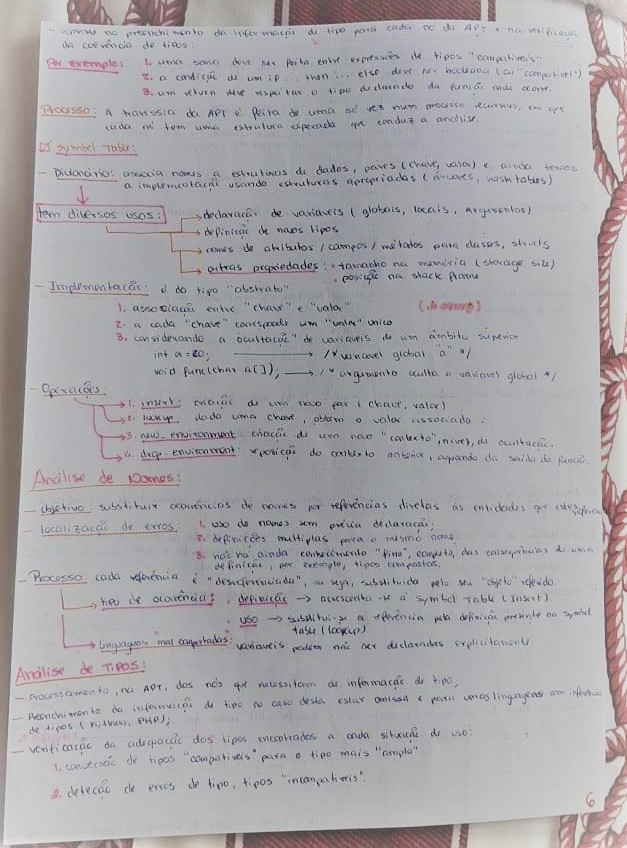 - consiste no preenchimento da informação de tipo para cada nó da APT e na verificação
da coerência de tipos:
Por exemplo: 1. uma soma deve ser feita entre expressões de tipos "compatíveis";
2. a condição de um if... then... else deve ser booleana (ou "compatível")
3. um return deve respeitar o tipo declarado da função onde ocorre.
Processo: A travessia da APT é feita de uma só vez num processo recursivo, em que
cada nó tem uma estrutura esperada que conduz a análise.
Symbol Table:
- Dicionário: associa nomes a estruturas de dados, pares (chave, valor) e ainda temos
a implementação usando estruturas apropriadas (árvores, hash tables)
tem diversos usos: → declaração de variaveis (globais, locais, argumentos)
→ definição de novos tipos
→ nomes de atributos / campos / métodos para classes, structs
→ outras propriedades: · tamanho na memória (storage size)
· posição na stack frame
- Implementação: é do tipo "abstrato"
1. associação entre "chave" e "valor"
2. a cada "chave" corresponde um "valor" unico
3. considerando a ocultação" de variaveis de um âmbito superior
int a = 20; → /* variavel global "a" */
void func(char a[]); → /* argumento oculta a variavel global */
- Operações
→ 1. insert: criação de um novo par (chave, valor)
→ 2. lookup: dada uma chave, obtém o valor associado.
→ 3. new_environment: criação de um novo "contexto", nível, de ocultação.
→ 4. drop_environment: reposição do contexto anterior, aquando da saída da função.
Análise de Nomes:
- objetivo: substituir ocorrências de nomes por referências diretas às entidades que estes referem
- localização de erros: 1. uso de nomes sem prévia declaração;
2. definições multiplas para o mesmo nome
3. não há ainda conhecimento "fino", completo, das consequências de uma
definição, por exemplo, tipos compostos.
- Processo: cada referência é "desreferenciada", ou seja, substituida pelo seu "objeto" referido.
→ tipo de ocorrência: · definição → acrescenta-se à Symbol Table (Insert)
· uso → substitui-se a referência pela definição presente na symbol
table (lookup)
→ Linguagens "mal comportadas": variaveis podem não ser declaradas explicitamente
Análise de TIPOS:
- Processamento, na APT, dos nós que necessitam de informação de tipo;
- Preenchimento da informação de tipo no caso desta estar omissa e para umas linguagens com inferência
de tipos (Python, PHP);
- verificação da adequação dos tipos encontrados a cada situação de uso:
1. conversão de tipos "compatíveis" para o tipo mais "amplo"
2. deteção de erros de tipo, tipos "incompatíveis".
6